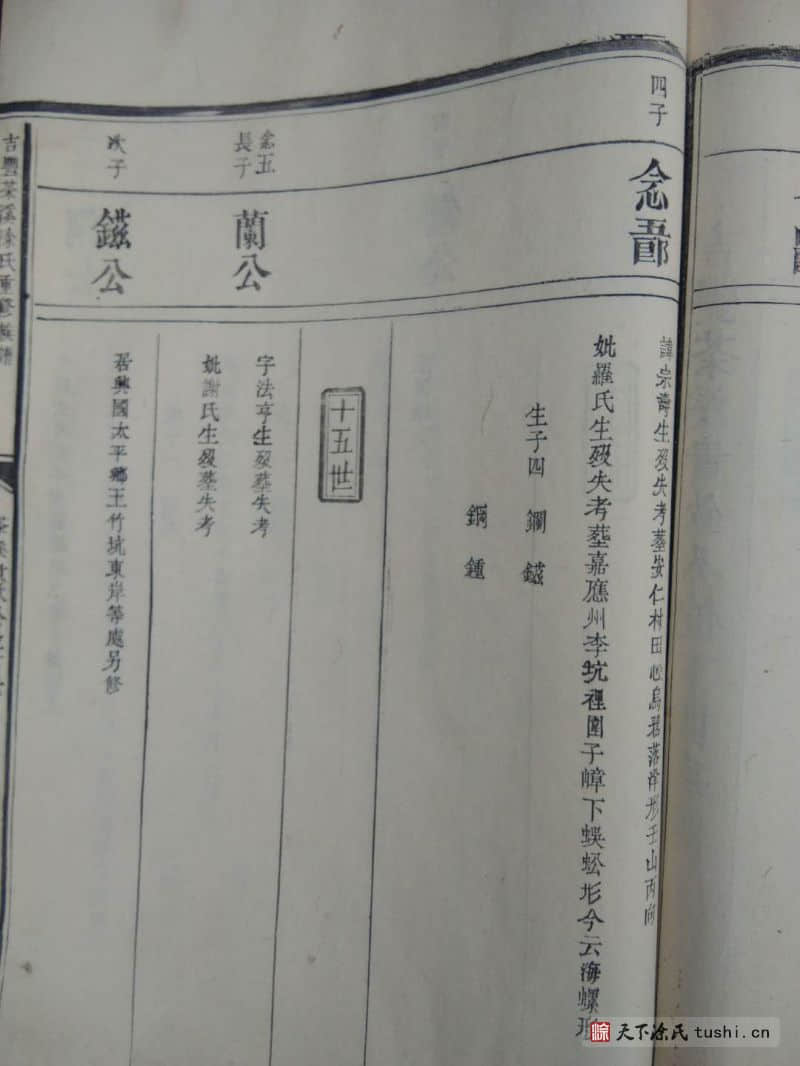 四子
念五郎
諱宗壽生歿失考墓安仁村田心烏鴉落洋形壬山丙向
妣羅氏生歿失考塟嘉應州李坑裡圍子嶂下蜈蚣形今云海螺形
生子四 鐗 鎡
鋼 鍾
十五世
念五長子
蘭公
字法亨生歿塟失考
妣謝氏生歿塟失考
次子
鎡公
居興國太平鄉王竹坑東岸等處另修
吉豐茶溪涂氏重修族譜
天下涂氏 tushi.cn